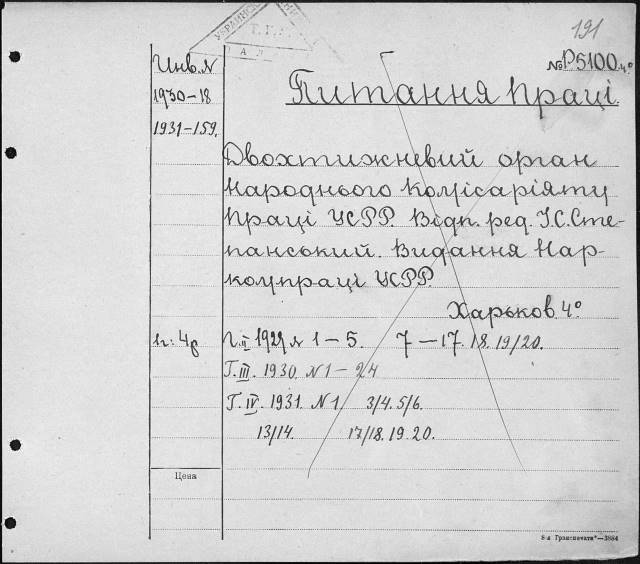 191
УКРАИНСК
№ Р5100 4°
Инв. №
1930–18
1931–159.
Питання Праці
Двохтижневий орган
Народнього Комісаріяту
Праці УСРР. Відп. ред. І.С. Сте-
панський. Видання Нар-
компраці УСРР.
Харьков. 4°
1г: 4р
Г. II 1929 № 1–5. 7–17. 18. 19/20.
Г. III. 1930. N 1–24
Г. IV. 1931. N 1. 3/4. 5/6.
13/14. 17/18. 19. 20.
Цена
8-я Гранспечати"—3884